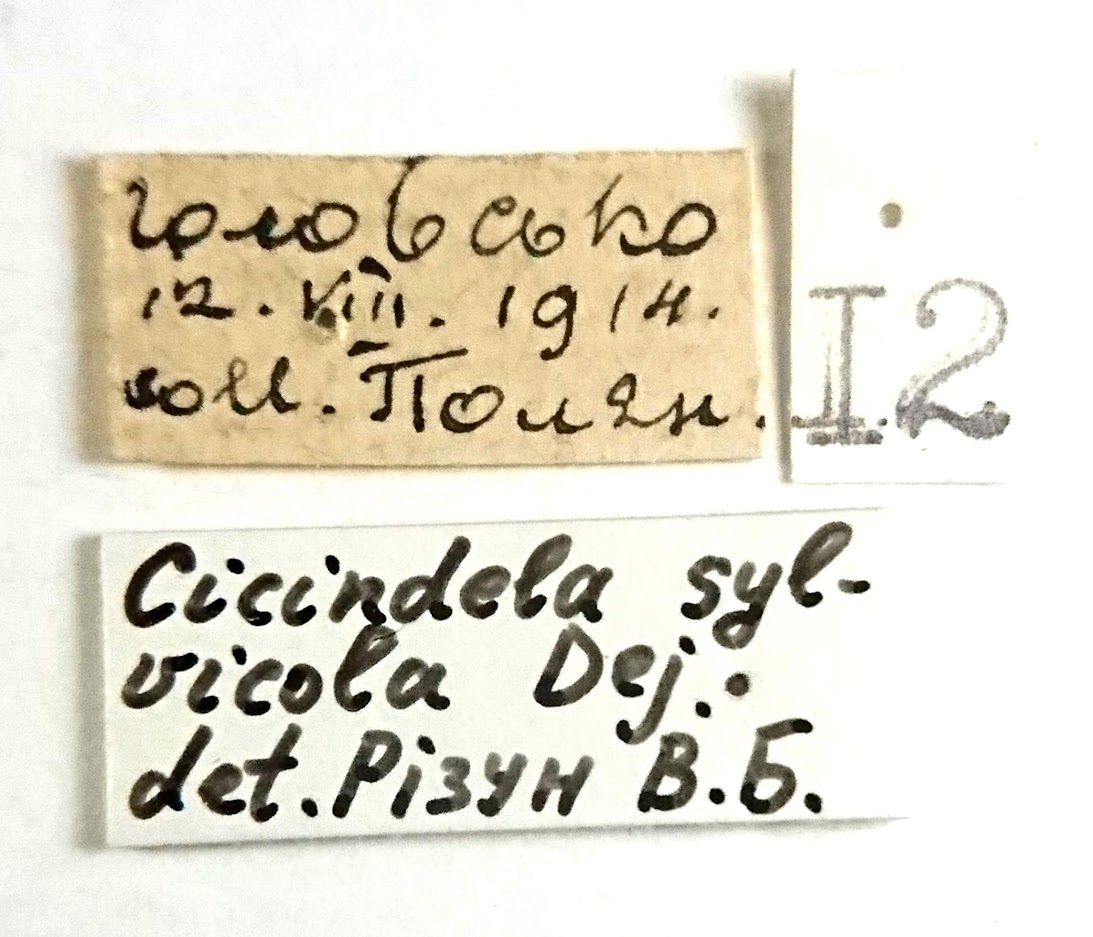 Голосько
12. VIII. 1914.
coll. Полян.
I2
Cicindela syl-
vicola Dej.
det. Різун В.Б.